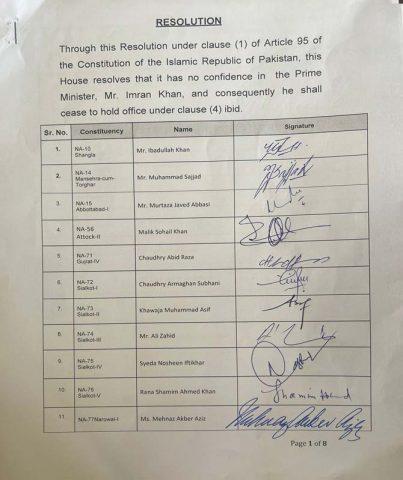 RESOLUTION
Through this Resolution under clause (1) of Article 95 of
the Constitution of the Islamic Republic of Pakistan, this
House resolves that it has no confidence in the Prime
Minister, Mr. Imran Khan, and consequently he shall
cease to hold office under clause (4) ibid.
Sr. No. Constituency Name Signature
1. NA-10 Shangla Mr. Ibadullah Khan
2. NA-14 Mansehra-cum-Torghar Mr. Muhammad Sajjad
3. NA-15 Abbottabad-I Mr. Murtaza Javed Abbasi
4. NA-56 Attock-II Malik Sohail Khan
5. NA-71 Gujrat-IV Chaudhry Abid Raza
6. NA-72 Sialkot-I Chaudhry Armaghan Subhani
7. NA-73 Sialkot-II Khawaja Muhammad Asif
8. NA-74 Sialkot-III Mr. Ali Zahid
9. NA-75 Sialkot-IV Syeda Nosheen Iftikhar
10. NA-76 Sialkot-V Rana Shamim Ahmed Khan
11. NA-77Narowal-I Ms. Mehnaz Akber Aziz Mehnaz Akber Aziz
Page 1 of 8